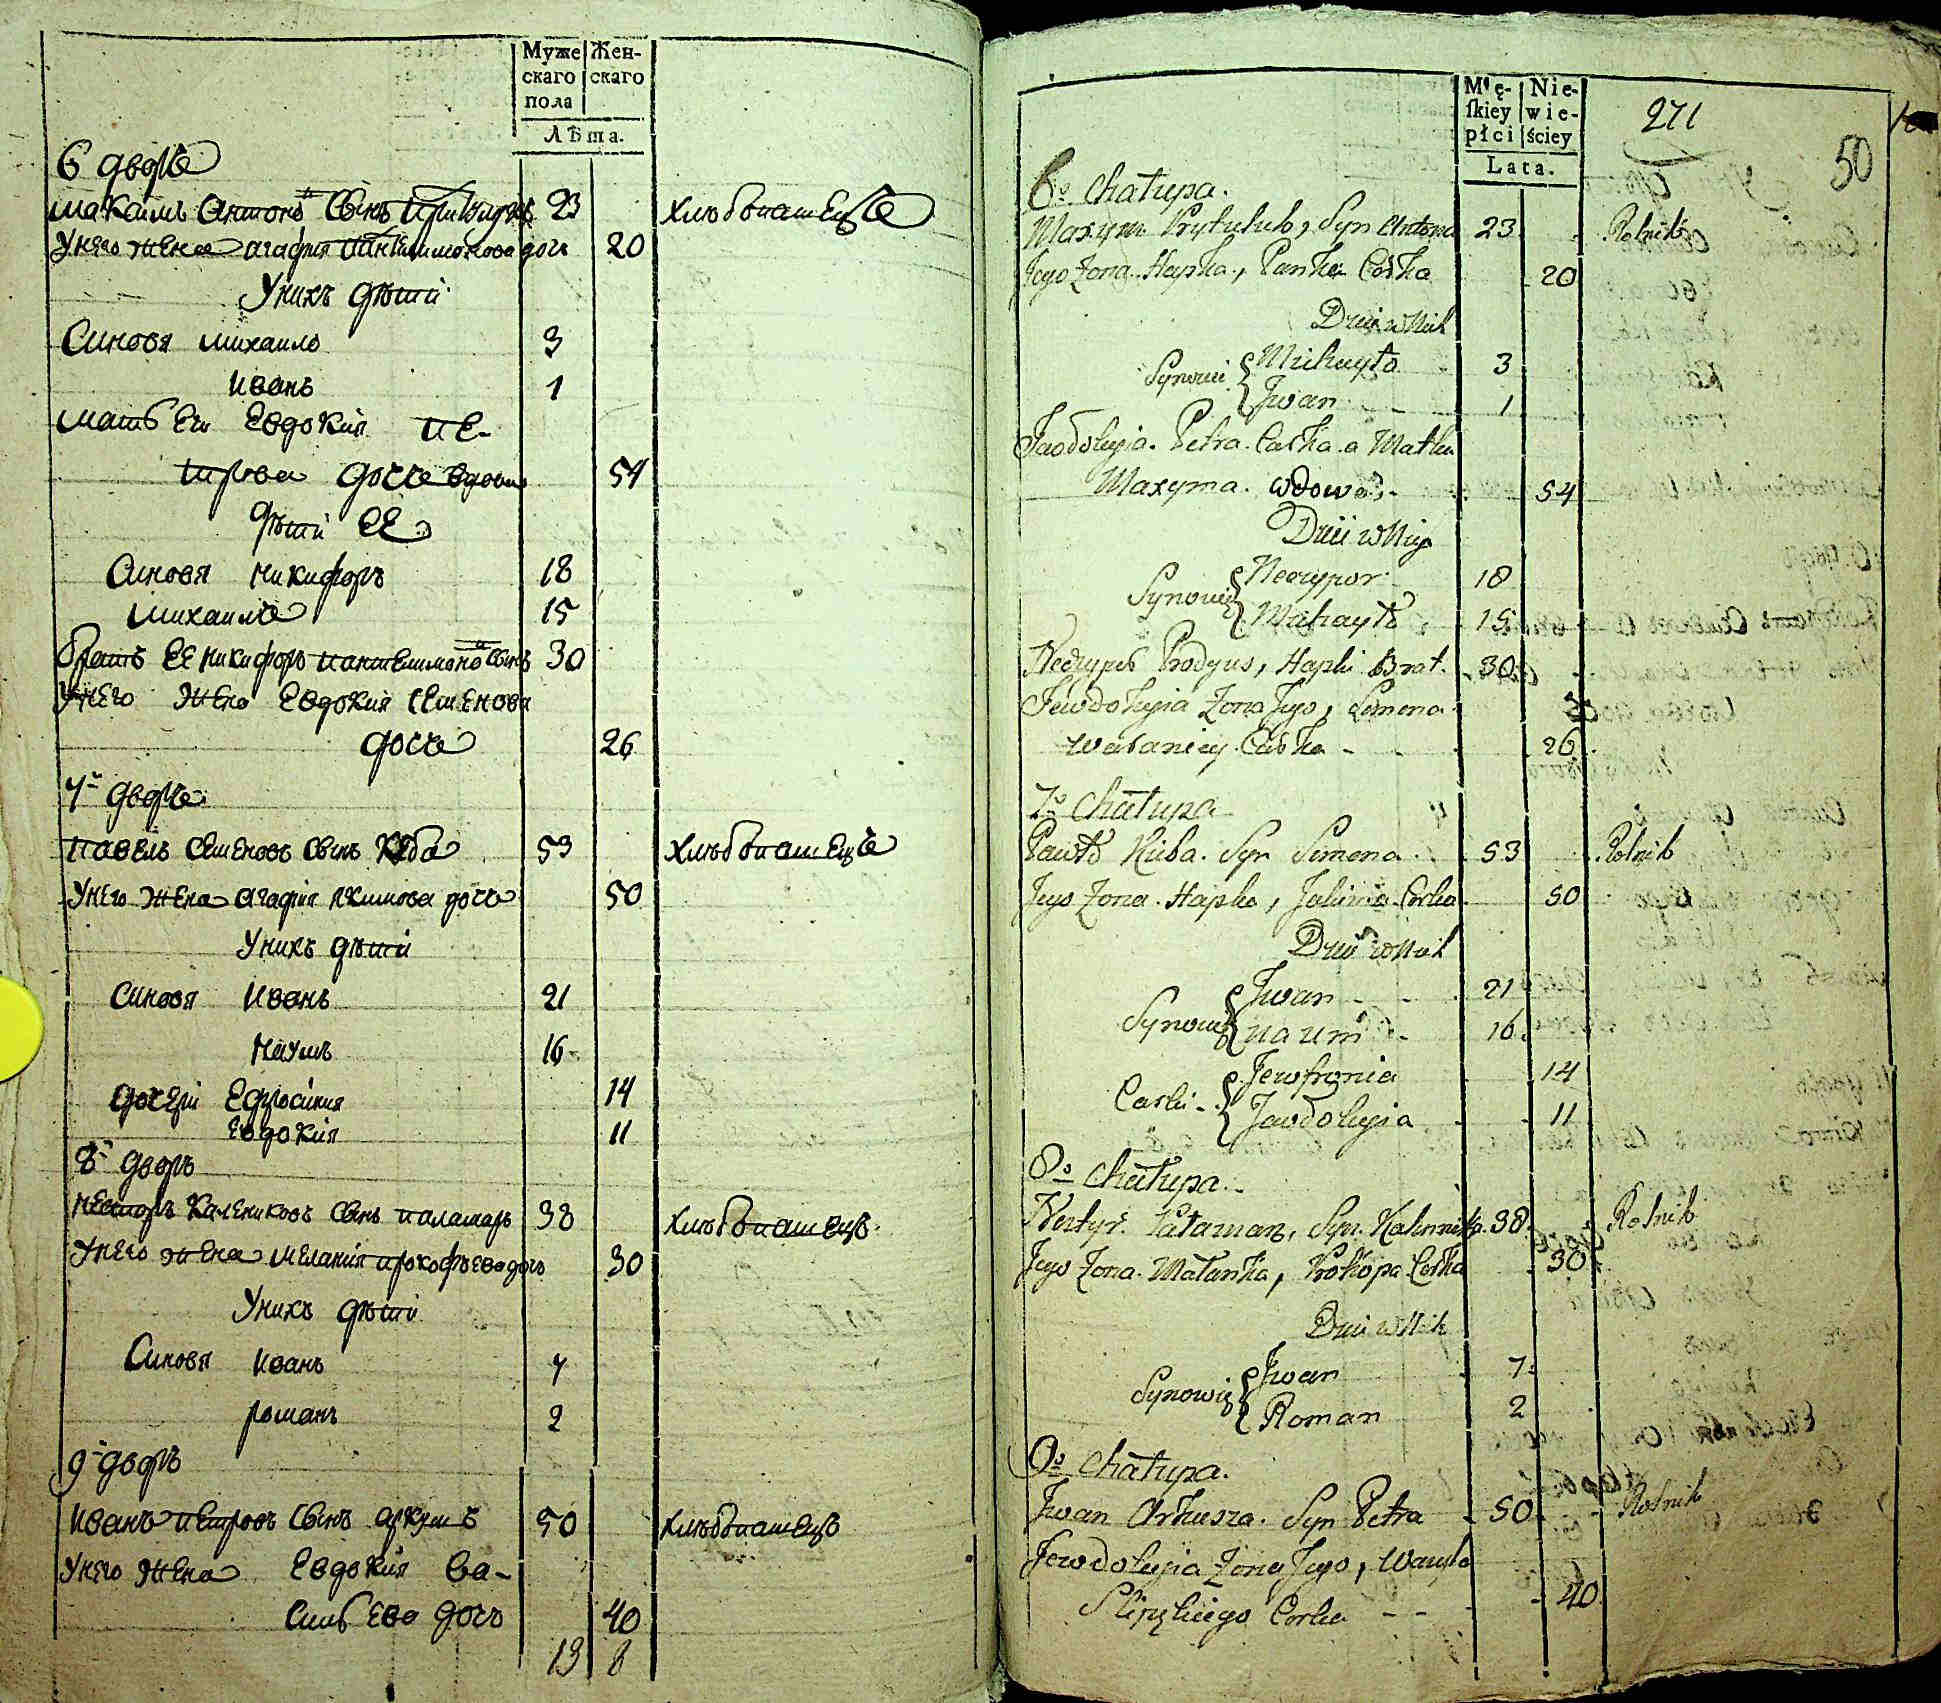 Муже Жен-
скаго скаго
пола
Лѣта.
6 дворъ
Максимъ Антоновъ сынъ 23 хлѣбопашецъ
У него жена Агафия Пантелимонова доч 20
У нихъ дѣтй
Синовя Михаило 3
Иванъ 1
Мать Ево Евдокия Пе-
трова дочъ вдова 54
Дѣти ЕЕ
Синовя Никифоръ 18
Михаилъ 15
Братъ ЕЕ Никифоръ Пантелимоновъ сынъ 30
У него жена Евдокия Семенова
дочъ 26
7й дворъ
Павелъ Семеновъ сынъ Куба 53 хлѣбопашецъ
У него жена Агафия Якимова дочъ 50
У нихъ дѣти
Синовя Иванъ 21
Наумъ 16
дочери Ефросиния 14
Евдокия 11
8й дворъ
Несторъ Калениковъ сынъ Паламаръ 38 хлѣбопашецъ
У него жена Мелания Прокофьева дочъ 30
У нихъ дѣти
Синовя Иванъ 7
Романъ 2
9й дворъ
Иванъ Петровъ сынъ Аркушъ 50 хлѣбопашецъ
У него жена Евдокия Ва-
силъева дочъ 40
13 8
Mę- Nie-
ſkiey wie-
płci ściey
Lata.
271
50
6a. Chałupa.
Maxym Prytuluk, Syn Antona 23 Rolnik
Jego Zona Hapka, Panka Corka 20
Dzieci w Nich
Synowie Michayło 3
Jwan 1
Jawdokyia. Petra. Corka a Matka
Maxyma. wdowa 54
Dzieci w Niey
Synowie Neczypor 18
Michayło 15
Neczypor Prodyus, Hapki Brat. 30
Jewdokyia Zona Jego, Semena
Corka 26
7a. Chałupa
Pawło Kuba. Syn Semena 53 Rolnik
Jego Zona. Hapka, Jakima Corka 50
Dzieci w Nich
Synowie Jwan 21
Naum 16
Corki Jewfronia 14
Jawdokyia 11
8a. Chałupa.
Nestyr. Pałamarz, Syn. Kalennika 38. Rolnik
Jego Zona. Małanka, Prokopa Corka 30
Dzieci w Nich
Synowie Jwan 7
Roman 2
9a. Chałupa.
Jwan Arkusza. Syn Petra 50 Rolnik
Jewdokyia Zona Jego, Wasyla
Slipzkiego Corka 40